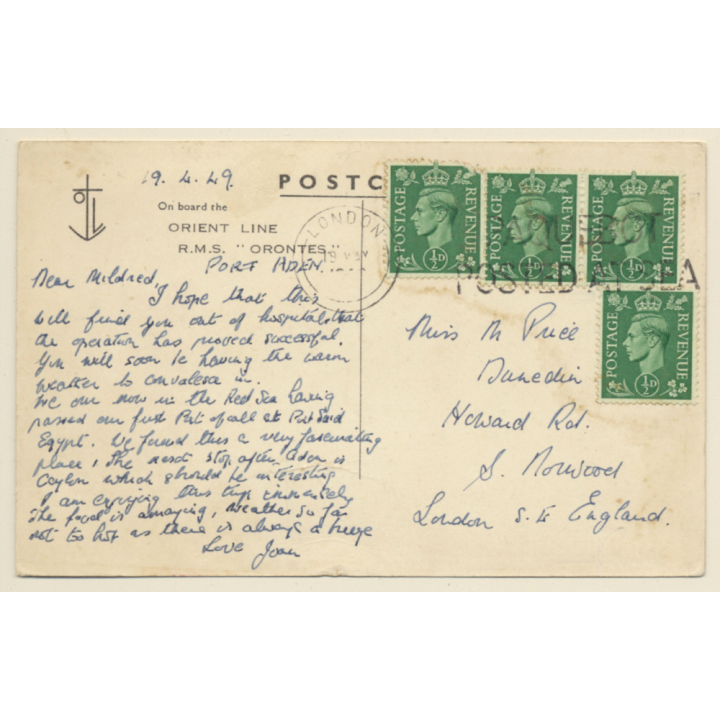 19.4.49.
POSTC
On board the
ORIENT LINE
R.M.S. "ORONTES"
PORT ADEN
Dear Mildred,
I hope that this
will find you out of hospital & that
the operation has proved successful.
You will soon be having the warm
weather to convalesce in.
We are now in the Red Sea having
passed our first Port of call at Port Said
Egypt. We found this a very fascinating
place, The next stop after Aden is
Ceylon which should be interesting
I am enjoying this trip immensely
The food is amazing, weather so far
not to hot as there is always a breeze
Love Joan
LONDON
POSTAGE REVENUE ½D
POSTAGE REVENUE ½D
POSTAGE REVENUE ½D
PAQUEBOT
POSTED AT SEA
POSTAGE REVENUE ½D
Miss M Price
Dunedin
Howard Rd.
S. Norwood
London S.E England.